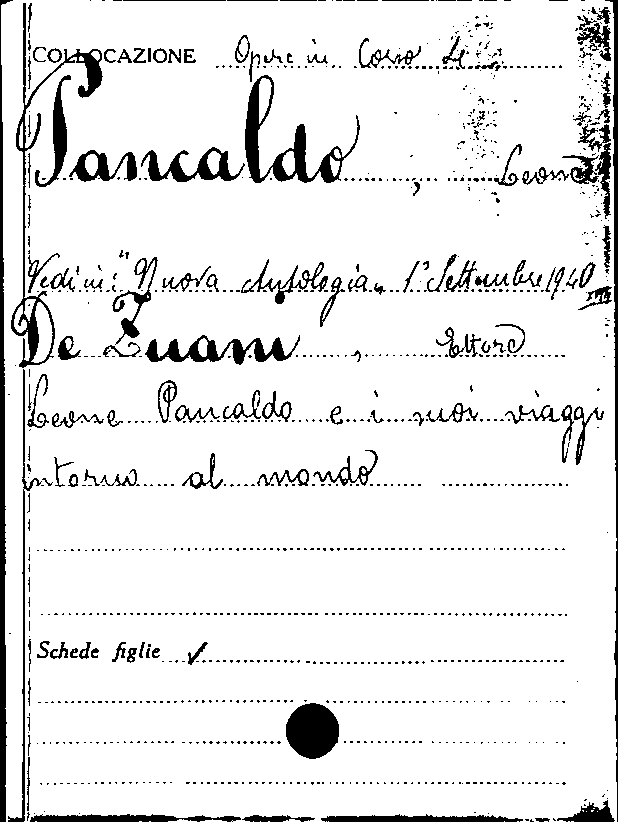 COLLOCAZIONE Opere in Corso
Pancaldo, Leone
Vedi in: "Nuova Antologia" 1° Settembre 1940
De Zuani, Ettore
Leone Pancaldo e i suoi viaggi
intorno al mondo
Schede figlie ✓